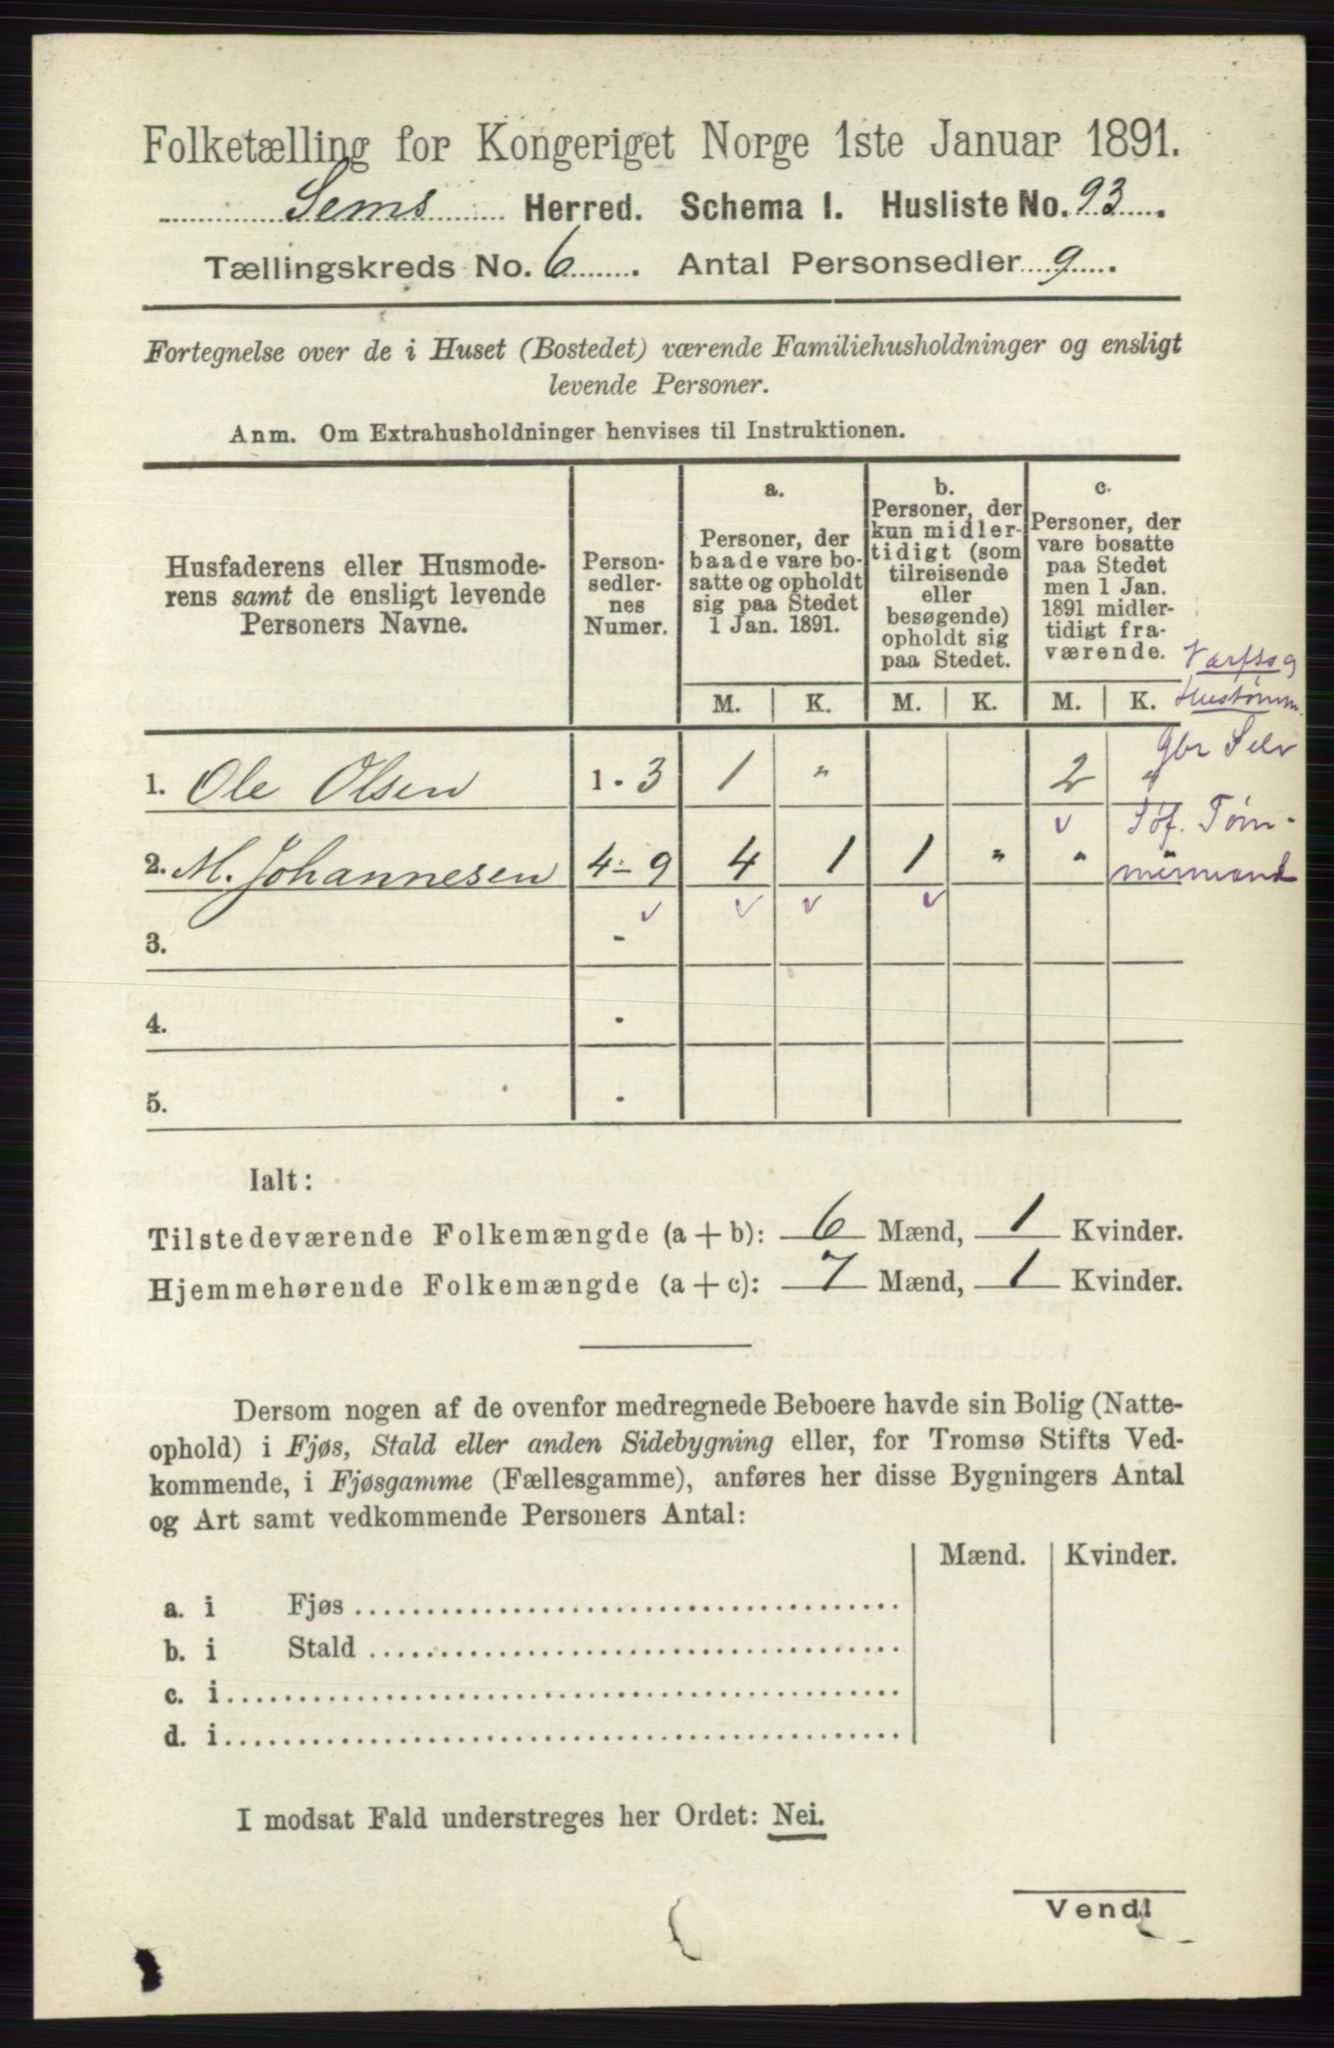 Folketælling for Kongeriget Norge 1ste Januar 1891.
Sems Herred. Schema I. Husliste No. 93.
Tællingskreds No. 6. Antal Personsedler 9.
Fortegnelse over de i Huset (Bostedet) værende Familiehusholdninger og ensligt
levende Personer.
Anm. Om Extrahusholdninger henvises til Instruktionen.
Husfaderens eller Husmode-
rens samt de ensligt levende
Personers Navne.
Person-
sedler-
nes
Numer.
a.
Personer, der
baade vare bo-
satte og opholdt
sig paa Stedet
1 Jan. 1891.
b.
Personer, der
kun midler-
tidigt (som
tilreisende
eller
besøgende)
opholdt sig
paa Stedet.
c.
Personer, der
vare bosatte
paa Stedet
men 1 Jan.
1891 midler-
tidigt fra-
værende.
Varfs og
Hustømm.
M. K. M. K. M. K.
Gbr Selv
1. Ole Olsen 1 - 3 1 " 2 "
Tøm-
2. M. Johannesen 4 - 9 4 1 1 " "
mermand
3. -
4. -
5. -
Ialt:
Tilstedeværende Folkemængde (a + b): 6 Mænd, 1 Kvinder.
Hjemmehørende Folkemængde (a + c): 7 Mænd, 1 Kvinder.
Dersom nogen af de ovenfor medregnede Beboere havde sin Bolig (Natte-
ophold) i Fjøs, Stald eller anden Sidebygning eller, for Tromsø Stifts Ved-
kommende, i Fjøsgamme (Fællesgamme), anføres her disse Bygningers Antal
og Art samt vedkommende Personers Antal:
Mænd. Kvinder.
a. i Fjøs
b. i Stald
c. i
d. i
I modsat Fald understreges her Ordet: Nei.
Vend!